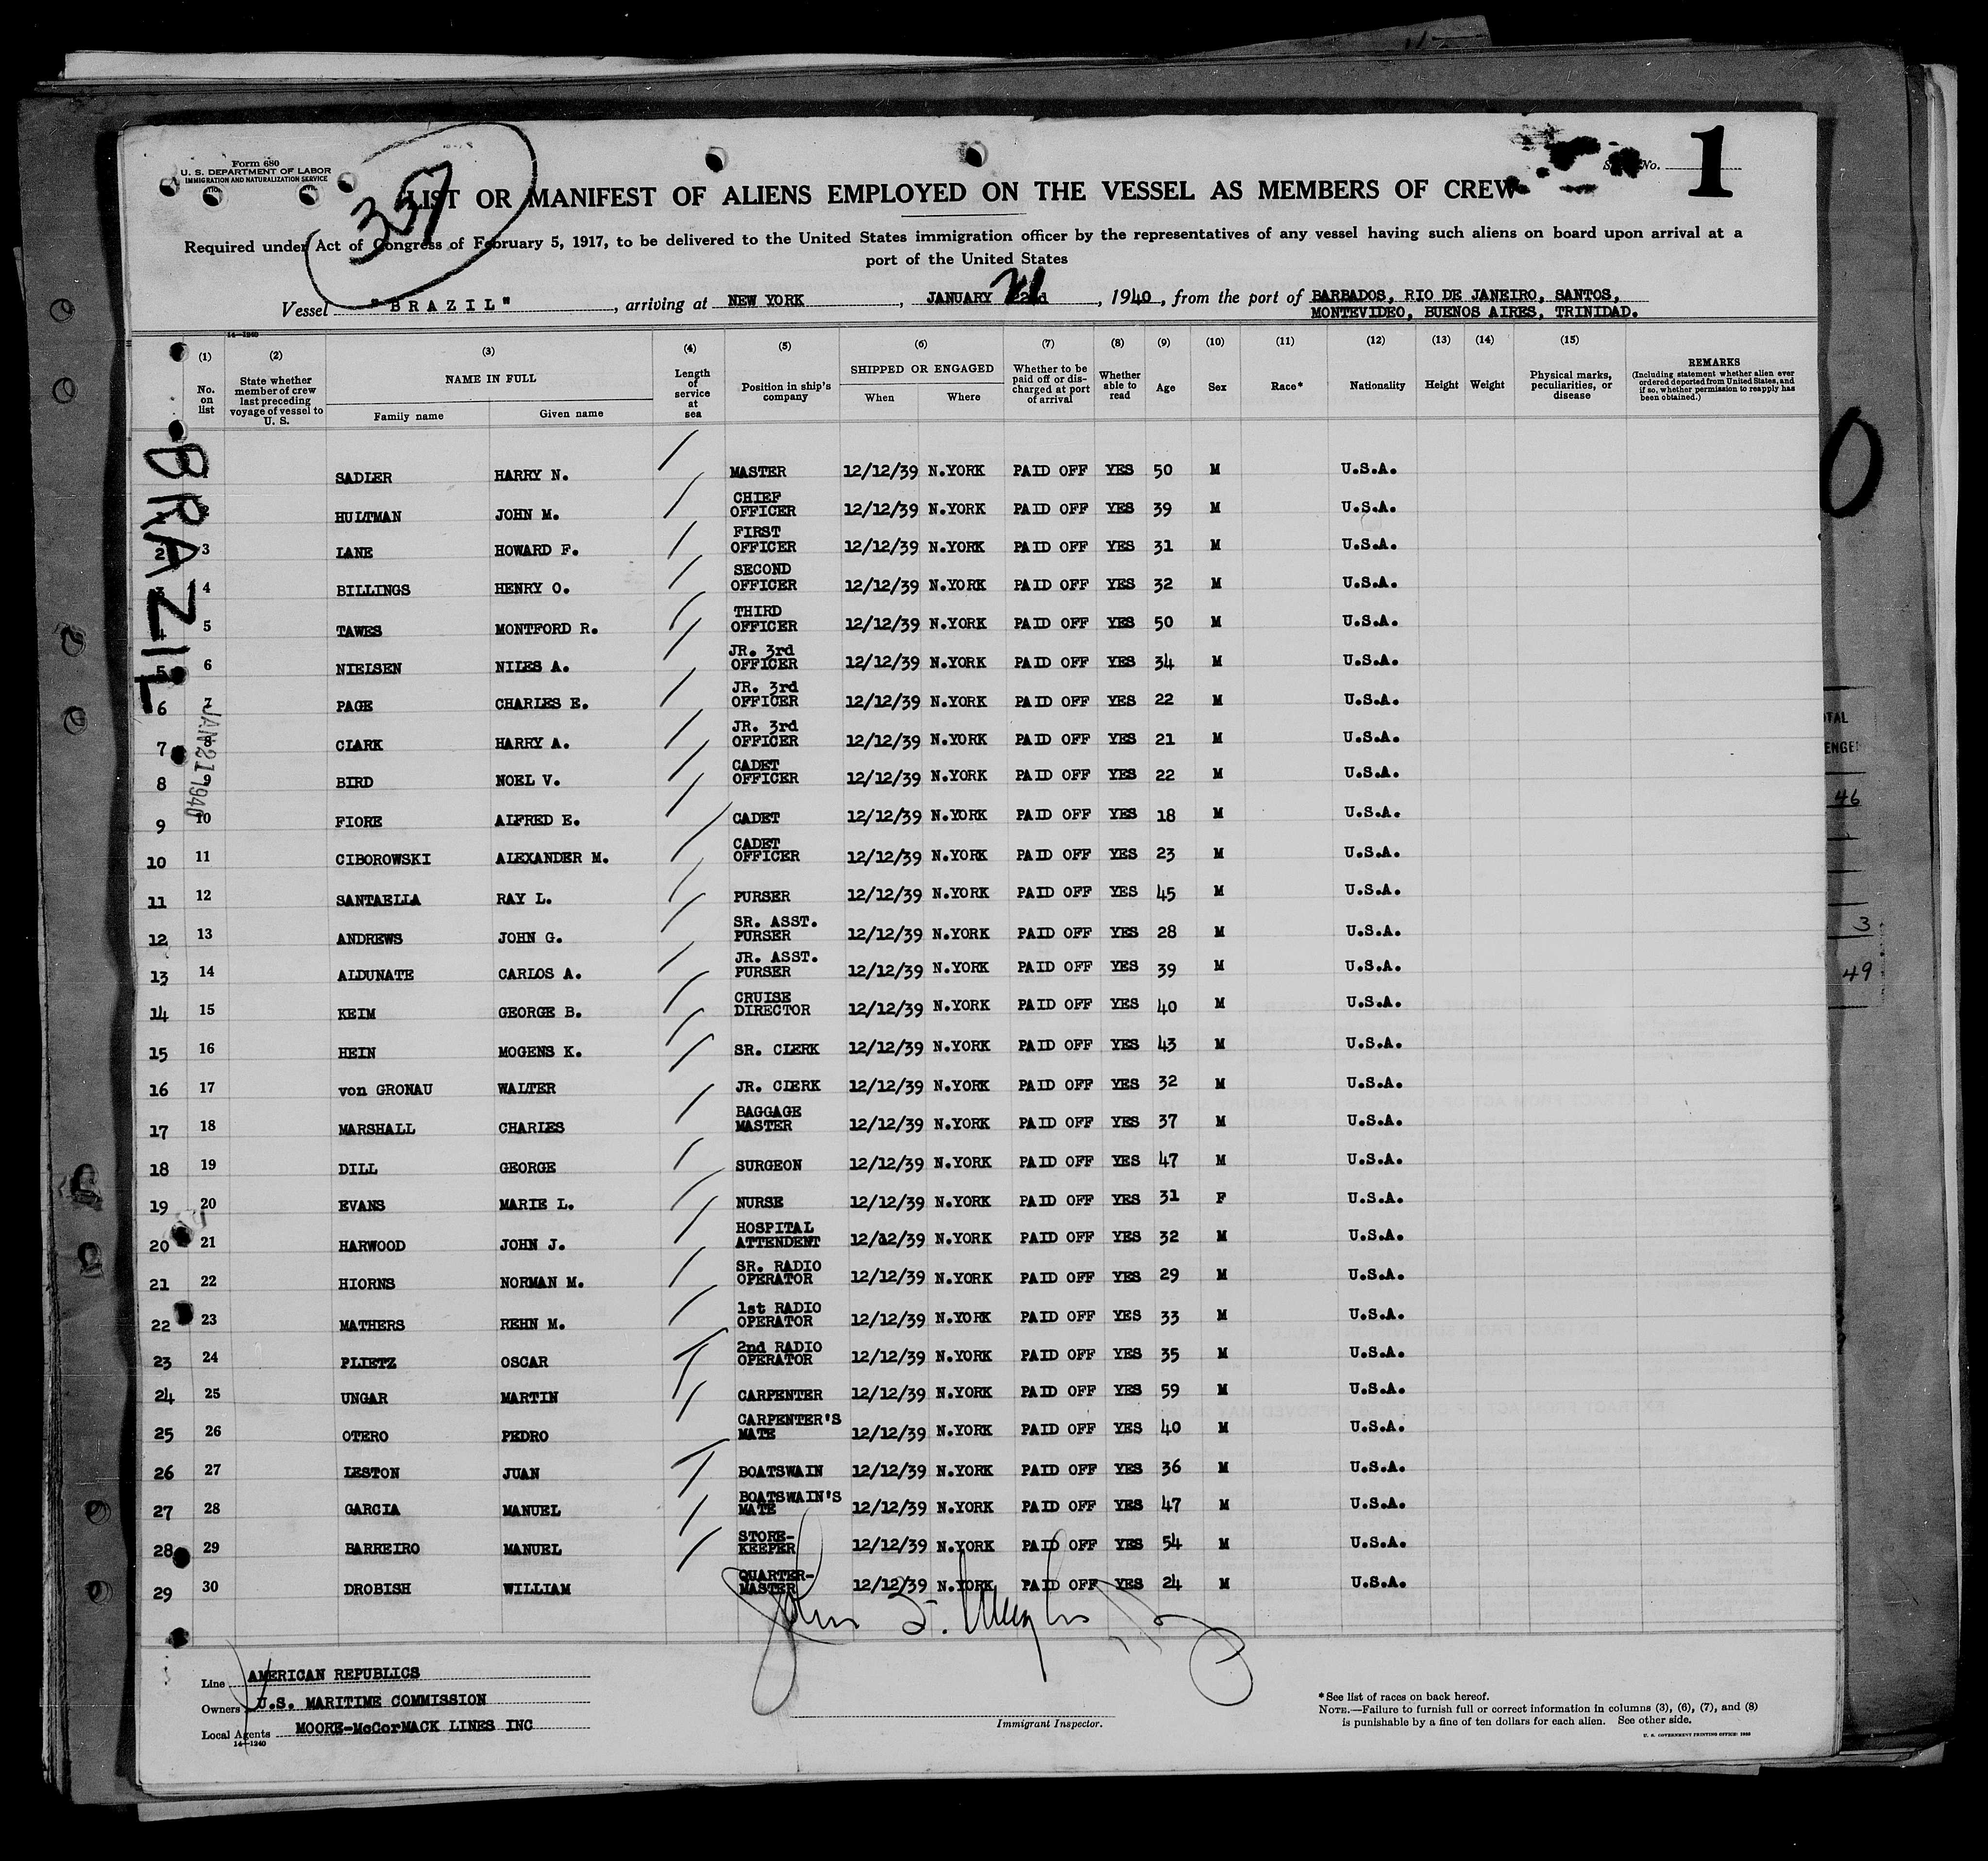 Form 680
U. S. DEPARTMENT OF LABOR
IMMIGRATION AND NATURALIZATION SERVICE
357
No. 1
LIST OR MANIFEST OF ALIENS EMPLOYED ON THE VESSEL AS MEMBERS OF CREW
Required under Act of Congress of February 5, 1917, to be delivered to the United States immigration officer by the representatives of any vessel having such aliens on board upon arrival at a
port of the United States
Vessel "BRAZIL", arriving at NEW YORK, JANUARY 22d, 1940, from the port of BARBADOS, RIO DE JANEIRO, SANTOS,
MONTEVIDEO, BUENOS AIRES, TRINIDAD.
14-1240
(1) No. on list
(2) State whether member of crew last preceding voyage of vessel to U. S.
(3) NAME IN FULL Family name Given name
(4) Length of service at sea
(5) Position in ship's company
(6) SHIPPED OR ENGAGED When Where
(7) Whether to be paid off or discharged at port of arrival
(8) Whether able to read
(9) Age
(10) Sex
(11) Race*
(12) Nationality
(13) Height
(14) Weight
(15) Physical marks, peculiarities, or disease
REMARKS (Including statement whether alien ever ordered deported from United States, and if so, whether permission to reapply has been obtained.)
BRAZIL
JAN 21 1940
SADLER HARRY N. MASTER 12/12/39 N.YORK PAID OFF YES 50 M U.S.A.
HULTMAN JOHN M. CHIEF OFFICER 12/12/39 N.YORK PAID OFF YES 39 M U.S.A.
2 3 LANE HOWARD F. FIRST OFFICER 12/12/39 N.YORK PAID OFF YES 31 M U.S.A.
3 4 BILLINGS HENRY O. SECOND OFFICER 12/12/39 N.YORK PAID OFF YES 32 M U.S.A.
4 5 TAWES MONTFORD R. THIRD OFFICER 12/12/39 N.YORK PAID OFF YES 50 M U.S.A.
5 6 NIELSEN NILES A. JR. 3rd OFFICER 12/12/39 N.YORK PAID OFF YES 34 M U.S.A.
6 7 PAGE CHARLES E. JR. 3rd OFFICER 12/12/39 N.YORK PAID OFF YES 22 M U.S.A.
7 8 CLARK HARRY A. JR. 3rd OFFICER 12/12/39 N.YORK PAID OFF YES 21 M U.S.A.
8 9 BIRD NOEL V. CADET OFFICER 12/12/39 N.YORK PAID OFF YES 22 M U.S.A.
9 10 FIORE ALFRED E. CADET 12/12/39 N.YORK PAID OFF YES 18 M U.S.A.
10 11 CIBOROWSKI ALEXANDER M. CADET OFFICER 12/12/39 N.YORK PAID OFF YES 23 M U.S.A.
11 12 SANTAELLA RAY L. PURSER 12/12/39 N.YORK PAID OFF YES 45 M U.S.A.
12 13 ANDREWS JOHN G. SR. ASST. PURSER 12/12/39 N.YORK PAID OFF YES 28 M U.S.A.
13 14 ALDUNATE CARLOS A. JR. ASST. PURSER 12/12/39 N.YORK PAID OFF YES 39 M U.S.A.
14 15 KEIM GEORGE B. CRUISE DIRECTOR 12/12/39 N.YORK PAID OFF YES 40 M U.S.A.
15 16 HEIN MOGENS K. SR. CLERK 12/12/39 N.YORK PAID OFF YES 43 M U.S.A.
16 17 von GRONAU WALTER JR. CLERK 12/12/39 N.YORK PAID OFF YES 32 M U.S.A.
17 18 MARSHALL CHARLES BAGGAGE MASTER 12/12/39 N.YORK PAID OFF YES 37 M U.S.A.
18 19 DILL GEORGE SURGEON 12/12/39 N.YORK PAID OFF YES 47 M U.S.A.
19 20 EVANS MARIE L. NURSE 12/12/39 N.YORK PAID OFF YES 31 F U.S.A.
20 21 HARWOOD JOHN J. HOSPITAL ATTENDENT 12/12/39 N.YORK PAID OFF YES 32 M U.S.A.
21 22 HIORNS NORMAN M. SR. RADIO OPERATOR 12/12/39 N.YORK PAID OFF YES 29 M U.S.A.
22 23 MATHERS REHN M. 1st RADIO OPERATOR 12/12/39 N.YORK PAID OFF YES 33 M U.S.A.
23 24 PLIETZ OSCAR 2nd RADIO OPERATOR 12/12/39 N.YORK PAID OFF YES 35 M U.S.A.
24 25 UNGAR MARTIN CARPENTER 12/12/39 N.YORK PAID OFF YES 59 M U.S.A.
25 26 OTERO PEDRO CARPENTER'S MATE 12/12/39 N.YORK PAID OFF YES 40 M U.S.A.
26 27 LESTON JUAN BOATSWAIN 12/12/39 N.YORK PAID OFF YES 36 M U.S.A.
27 28 GARCIA MANUEL BOATSWAIN'S MATE 12/12/39 N.YORK PAID OFF YES 47 M U.S.A.
28 29 BARREIRO MANUEL STORE-KEEPER 12/12/39 N.YORK PAID OFF YES 54 M U.S.A.
29 30 DROBISH WILLIAM QUARTER-MASTER 12/12/39 N.YORK PAID OFF YES 24 M U.S.A.
John
Line AMERICAN REPUBLICS
Owners U.S. MARITIME COMMISSION
Local Agents MOORE-McCorMACK LINES INC
14-1240
Immigrant Inspector.
*See list of races on back hereof.
NOTE.—Failure to furnish full or correct information in columns (3), (6), (7), and (8)
is punishable by a fine of ten dollars for each alien. See other side.
46
3
49